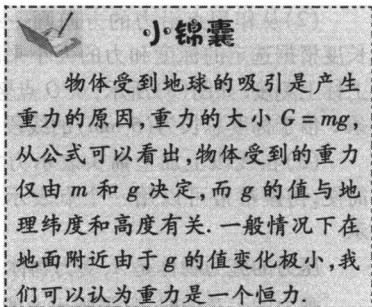 小锦囊
物体受到地球的吸引是产生
重力的原因,重力的大小 G=mg,
从公式可以看出,物体受到的重力
仅由 m 和 g 决定,而 g 的值与地
理纬度和高度有关.一般情况下在
地面附近由于 g 的值变化极小,我
们可以认为重力是一个恒力.